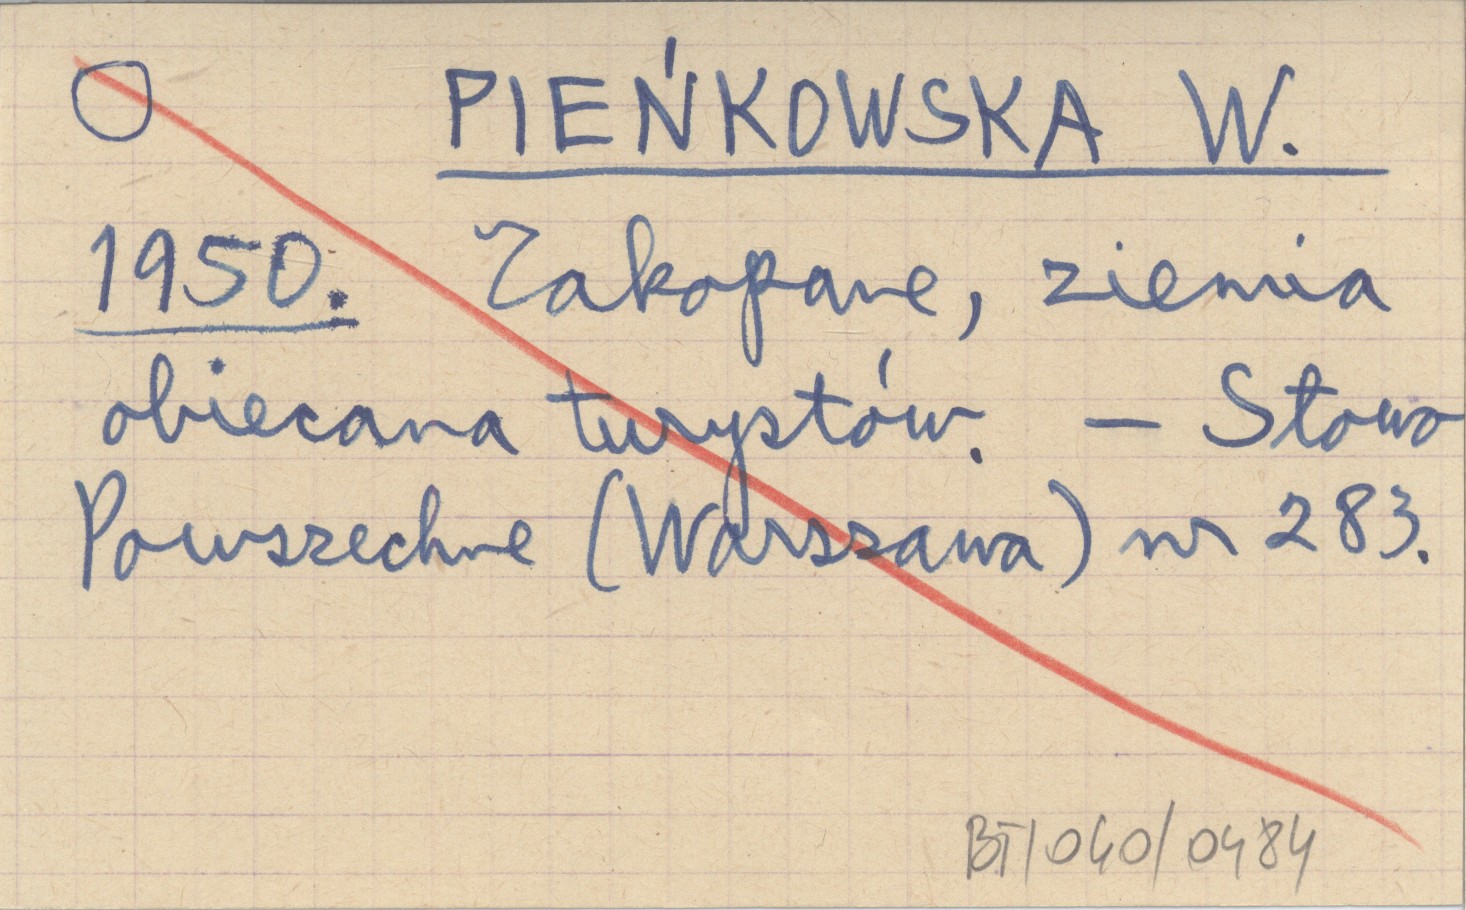 PIEŃKOWSKA W.
1950. Zakopane, ziemia
obiecana turystów. — Słowo
Powszechne (Warszawa) nr 283.
BT/040/0484